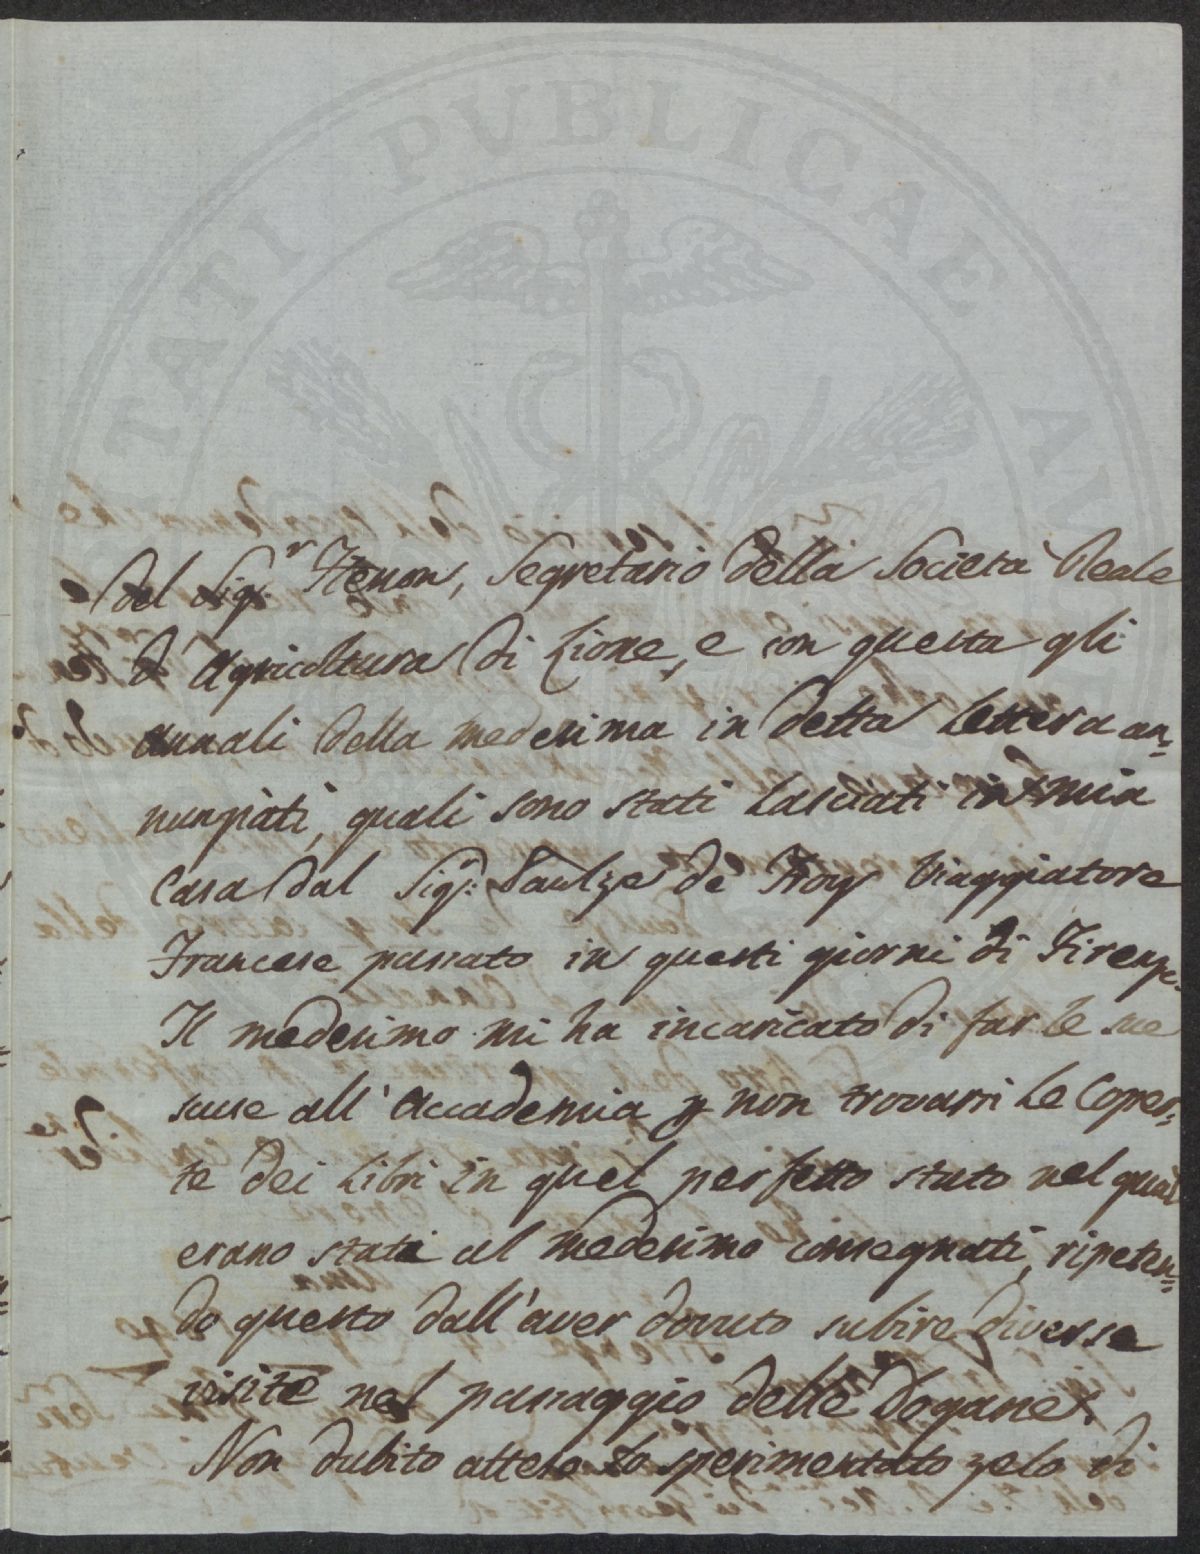 PROSPERITATI PUBLICAE AUGENDAE
del Sig.r Henon, Segretario della Società Reale
d'Agricoltura di Lione, e con questa gli
Annali della medesima in detta Lettera an=
nunziati, quali sono stati Lasciati in mia
Casa dal Sig.r Saulze de Froy Viaggiatore
Francese passato in questi giorni di Firenze.
Il medesimo mi ha incaricato di far le sue
scuse all'Accademia p non trovarsi Le Coper=
te dei Libri in quel perfetto stato nel quale
erano stati al medesimo consegnati, ripeten=
do questo dall'aver dovuto subire diverse
visite nel passaggio delle Dogane.
Non dubito atteso Lo sperimentato zelo di